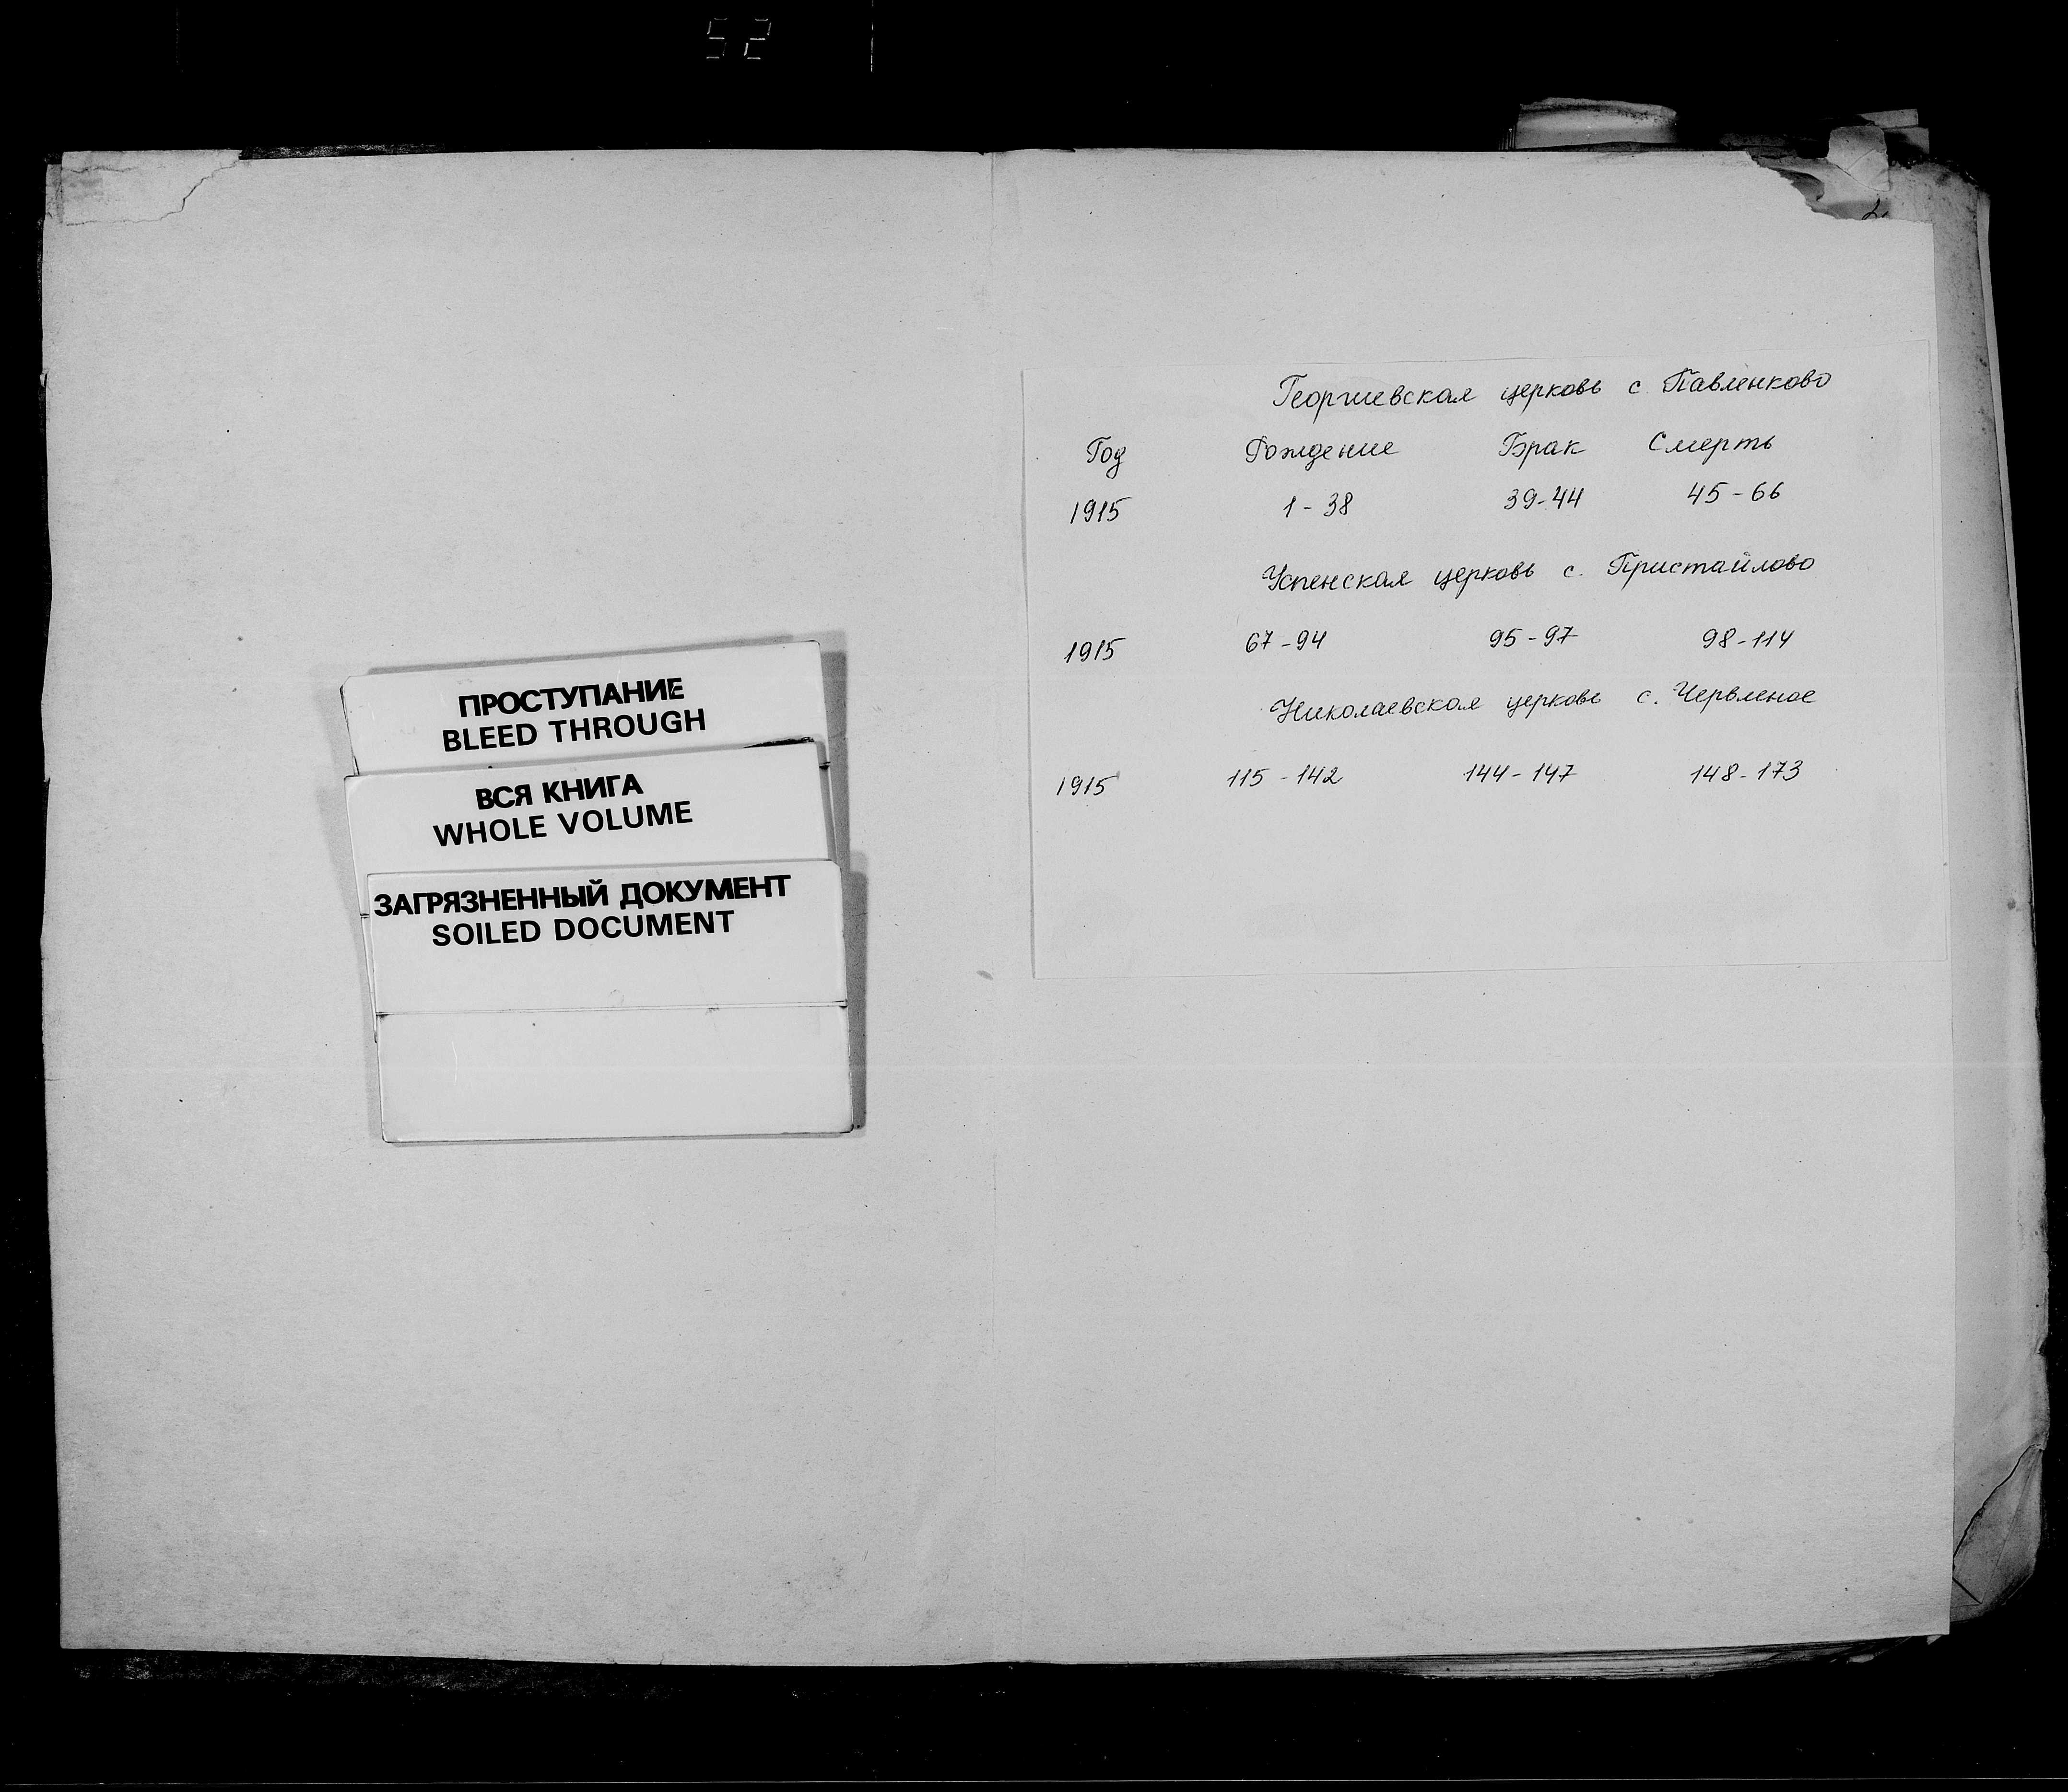 52
ПРОСТУПАНИЕ
BLEED THROUGH
ВСЯ КНИГА
WHOLE VOLUME
ЗАГРЯЗНЕННЫЙ ДОКУМЕНТ
SOILED DOCUMENT
Георгиевская церковь с. Павленково
Год Рождение Брак Смерть
1915 1-38 39-44 45-66
Успенская церковь с. Пристайлово
1915 67-94 95-97 98-114
Николаевская церковь с. Червленое
1915 115-142 144-147 148-173